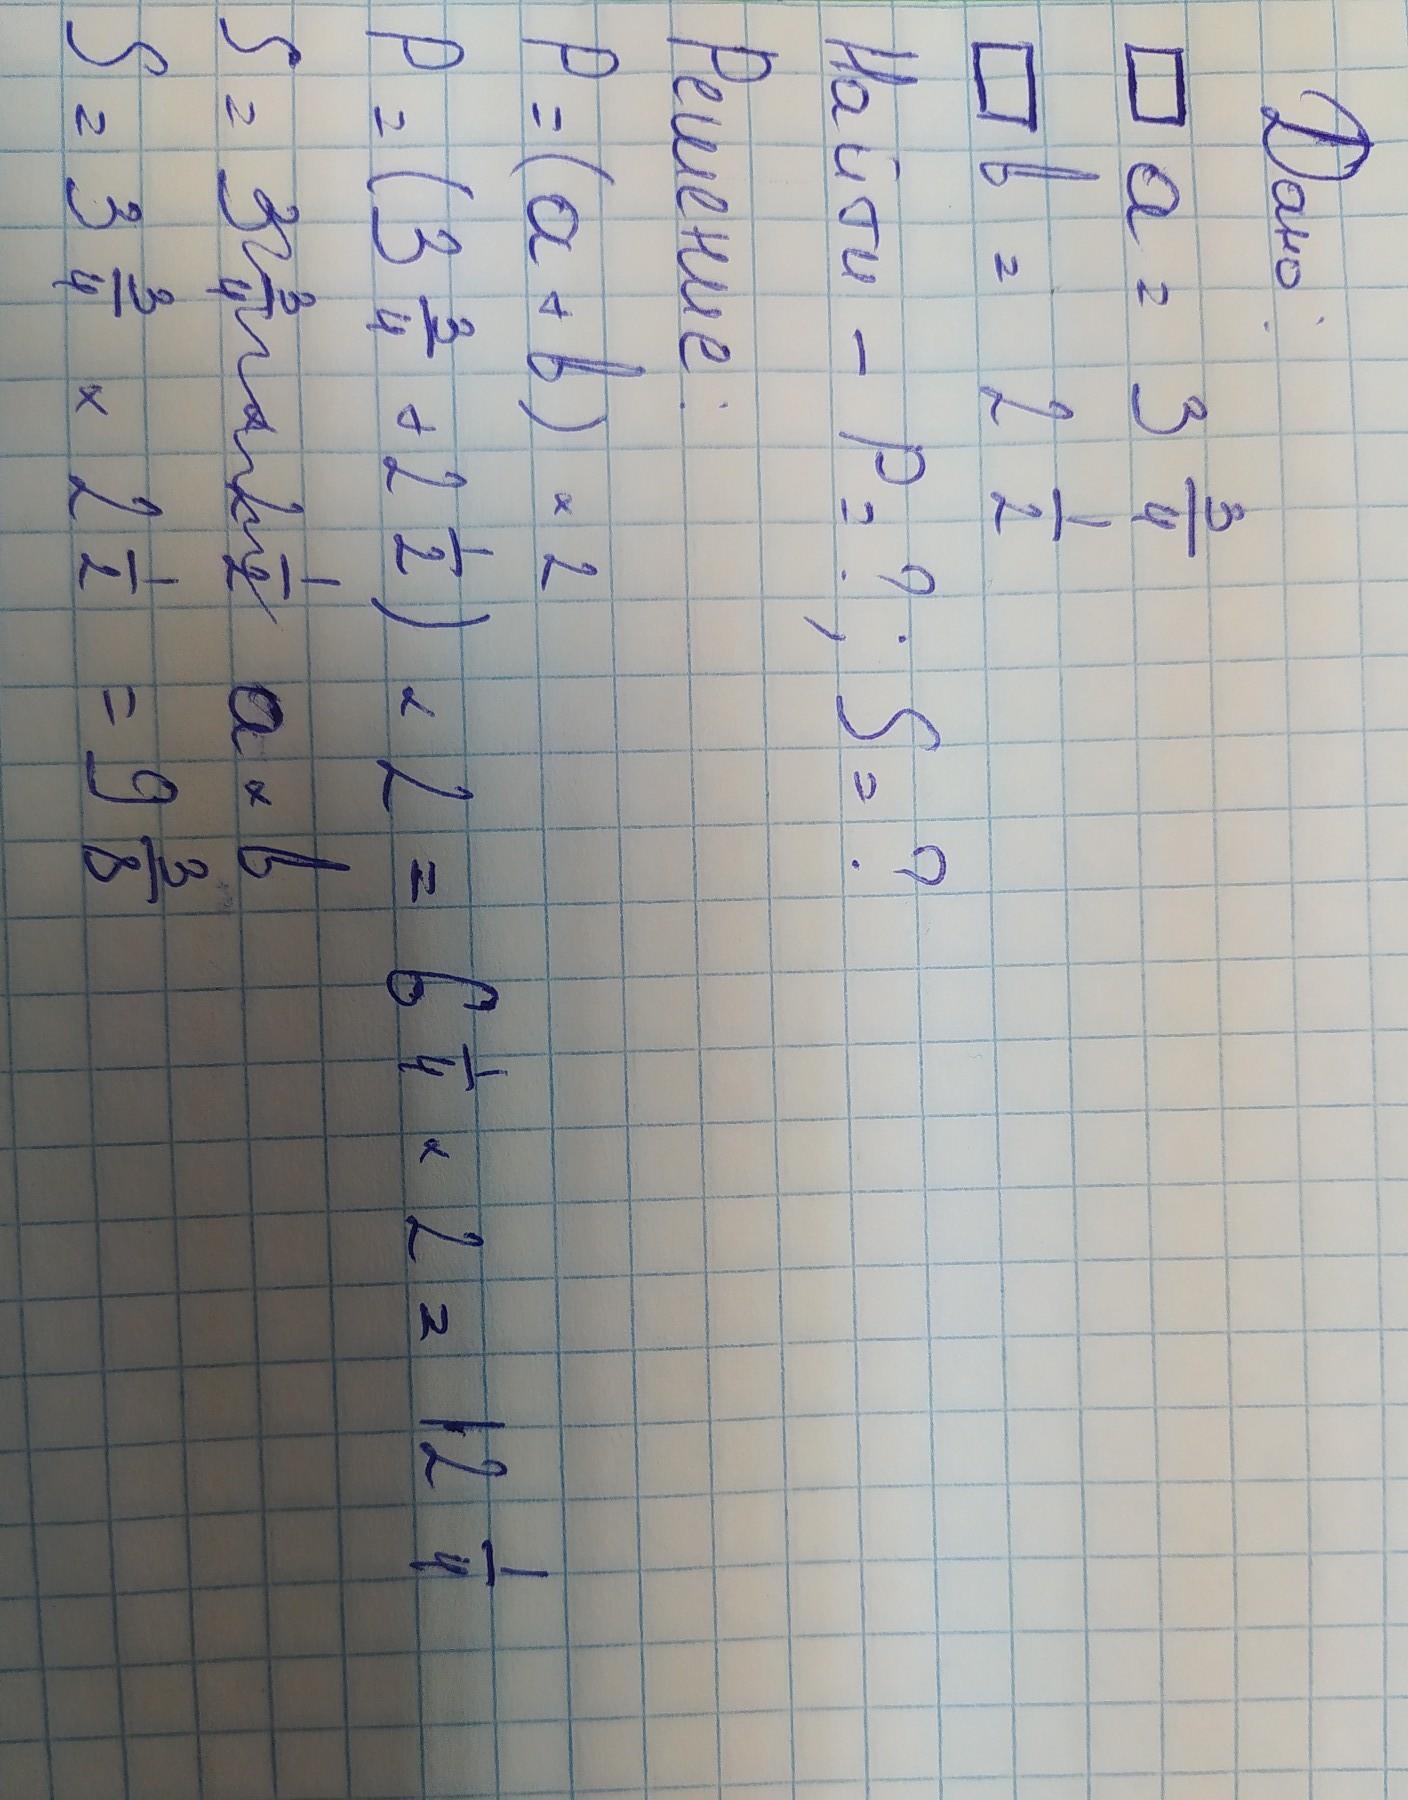 Дано:
□ a = 3 3/4
□ b = 2 1/2
Найти - P = ?; S = ?
Решение:
P = (a + b) × 2
P = (3 3/4 + 2 1/2) × 2 = 6 1/4 × 2 = 12 1/4
S = a × b
S = 3 3/4 × 2 1/2 = 9 3/8